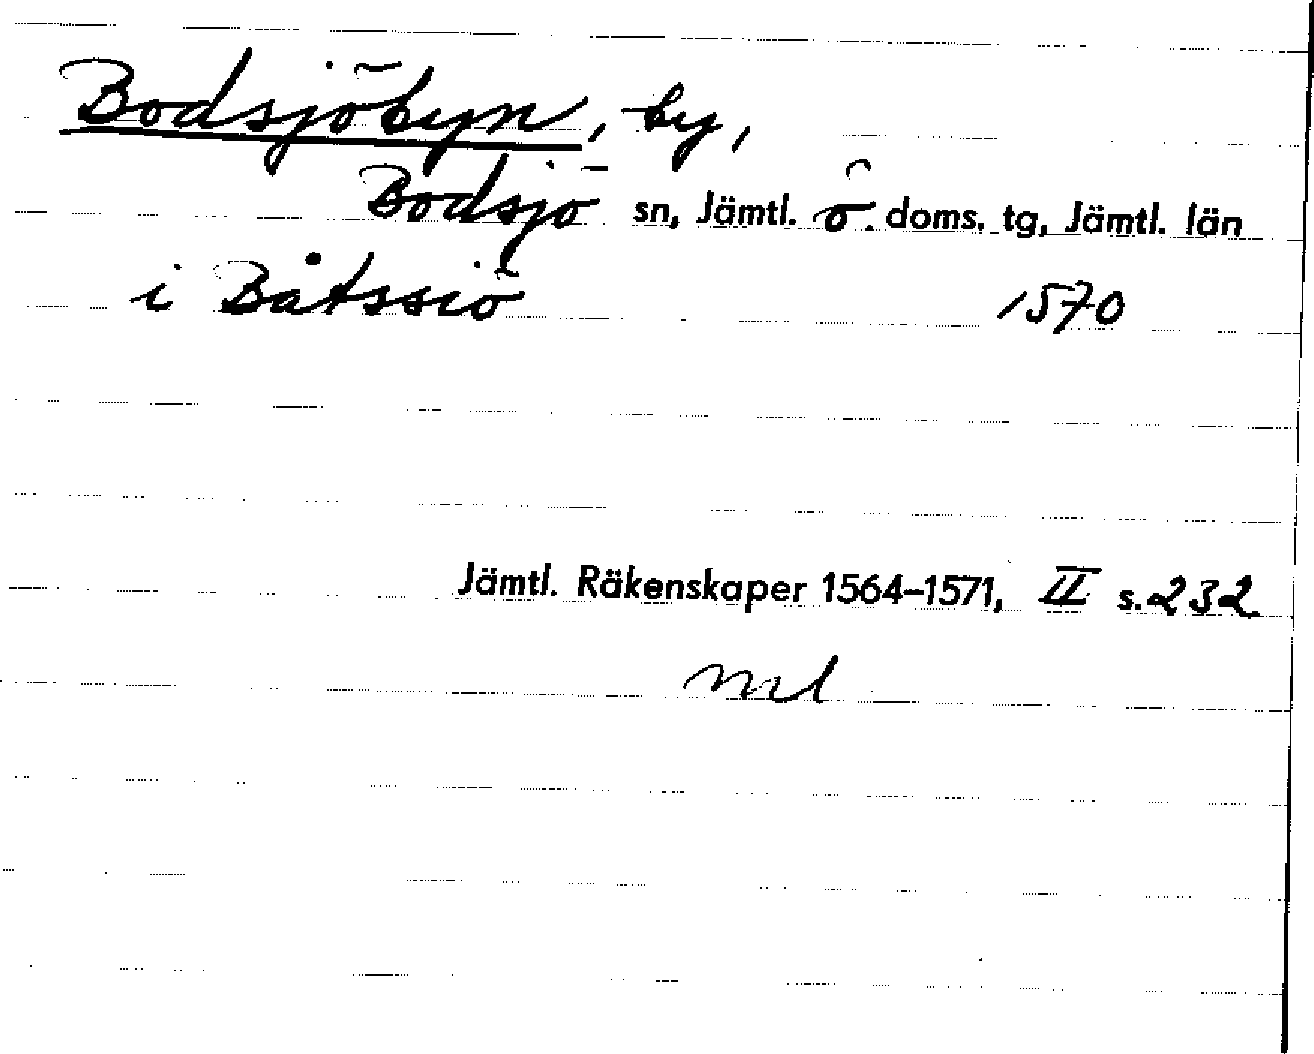 Bodsjöbyn, by,
Bodsjö sn, Jämtl. ö. doms. tg, Jämtl. län
i Båtssiö 1570
Jämtl. Räkenskaper 1564–1571, II s. 232